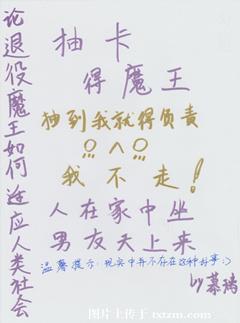 论退役魔王如何适应人类社会
抽卡
得魔王
抽到我就得负责
我不走!
人在家中坐
男友天上来
温馨提示:现实中并不存在这种好事:)
by慕璃
图片上传于txtzm.com